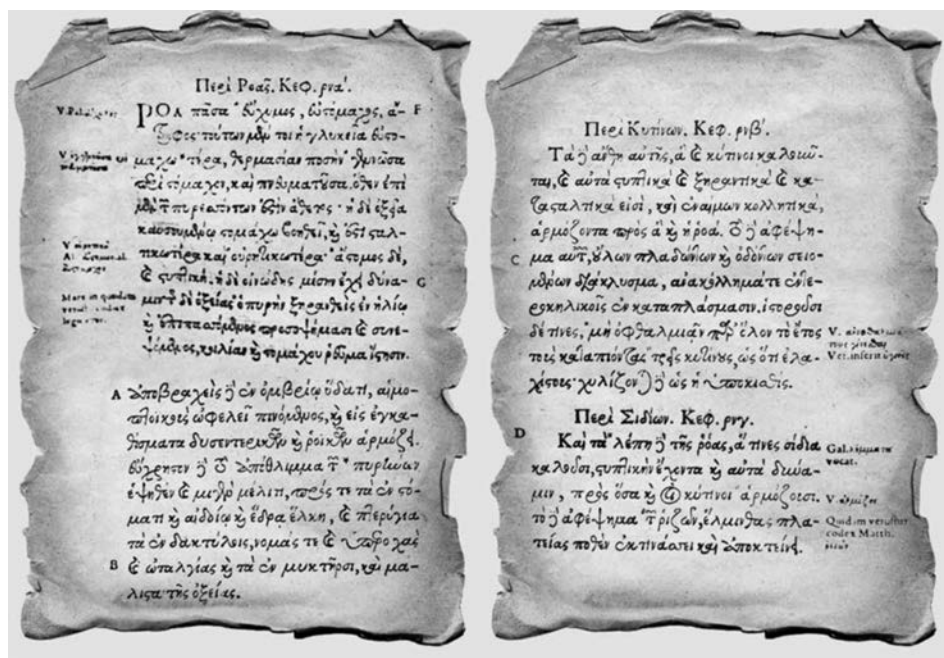 Περὶ Ρόας. Κεφ. ρνα'.
ΡΟΑ πᾶσα εὔχυμος, εὐστόμαχος, ἄ- F
τροφος· τούτων μέν τοι ἡ γλυκεῖα εὐστο-
μαχωτέρα, θερμασίαν ποσὴν γεννῶσα
περὶ στόμαχον, καὶ πνευματοῦσα. ὅθεν ἐπὶ
μὲν τῶν πυρεσσόντων ἐστὶν ἄθετος· ἡ δὲ ὀξεῖα
καυσουμένῳ στομάχῳ βοηθεῖ, καὶ ἔστι σταλ-
τικωτέρα καὶ οὐρητικωτέρα· ἄστομος δὲ,
καὶ στυπτική. ἡ δὲ οἰνώδης μέσην ἔχει δύνα- G
μιν. τῆς δὲ ὀξείας ὁ πυρὴν ξηρανθεὶς ἐν ἡλίῳ
καὶ ἐπιπασσόμενος προσοψήμασι καὶ συνε-
ψόμενος, κοιλίας καὶ στομάχου ῥεῦμα ἵστησιν.
A ἀποβραχεὶς δὲ ἐν ὀμβρίῳ ὕδατι, αἱμο-
πτοϊκοῖς ὠφελεῖ πινόμενος, καὶ εἰς ἐγκα-
θίσματα δυσεντερικῶν καὶ ῥοϊκῶν ἁρμόζει.
εὔχρηστον δὲ καὶ τὸ ἀπόθλιμμα τῶν πυρίνων
ἑψηθὲν καὶ μιγὲν μέλιτι, πρός τε τὰ ἐν στό-
ματι καὶ αἰδοίῳ καὶ ἕδρᾳ ἕλκη, καὶ πτερύγια
τὰ ἐν δακτύλοις, νομάς τε καὶ ὑπεροχὰς
B καὶ ὠταλγίας καὶ τὰ ἐν μυκτῆρσι, καὶ μά-
λιστα τῆς ὀξείας.
Περὶ Κυτίνων. Κεφ. ρνβ'.
Τὰ δὲ ἄνθη αὐτῆς, ἃ καὶ κύτινοι καλοῦν-
ται, καὶ αὐτὰ στυπτικὰ καὶ ξηραντικὰ καὶ κα-
τασταλτικά εἰσι, καὶ ἐναίμων κολλητικά,
ἁρμόζοντα πρὸς ἃ καὶ ἡ ῥοά. τὸ δὲ ἀφέψη-
C μα αὐτῶν, οὔλων πλαδώντων καὶ ὀδόντων σειο-
μένων διάκλυσμα, ἀνακόλλημά τε ἐντε-
ροκηλικοῖς ἐν καταπλάσμασιν. ἱστοροῦσι
δέ τινες, μὴ ὀφθαλμιᾶν παρ' ὅλον τὸ ἔτος
τοὺς καταπιόντας τρεῖς κυτίνους, ὡς ὅτι ἐλα-
χίστους· χυλίζονται δὲ ὡς ἡ ὑποκιστίς.
Περὶ Σιδίων. Κεφ. ρνγ.
D Καὶ τὰ λέπη δὲ τῆς ῥόας, ἅ τινες σίδια
καλοῦσι, στυπτικὴν ἔχοντα καὶ αὐτὰ δύνα-
μιν, πρὸς ὅσα καὶ οἱ κύτινοι ἁρμόζουσι.
τὸ δὲ ἀφέψημα τῶν ῥιζῶν, ἕλμινθας πλα-
τείας ποθὲν ἐκτινάσσει καὶ ἀποκτείνει.
Gal. λέμματα
vocat.
V. ἁρμόζει
Quidam vetustus
codex Matth.